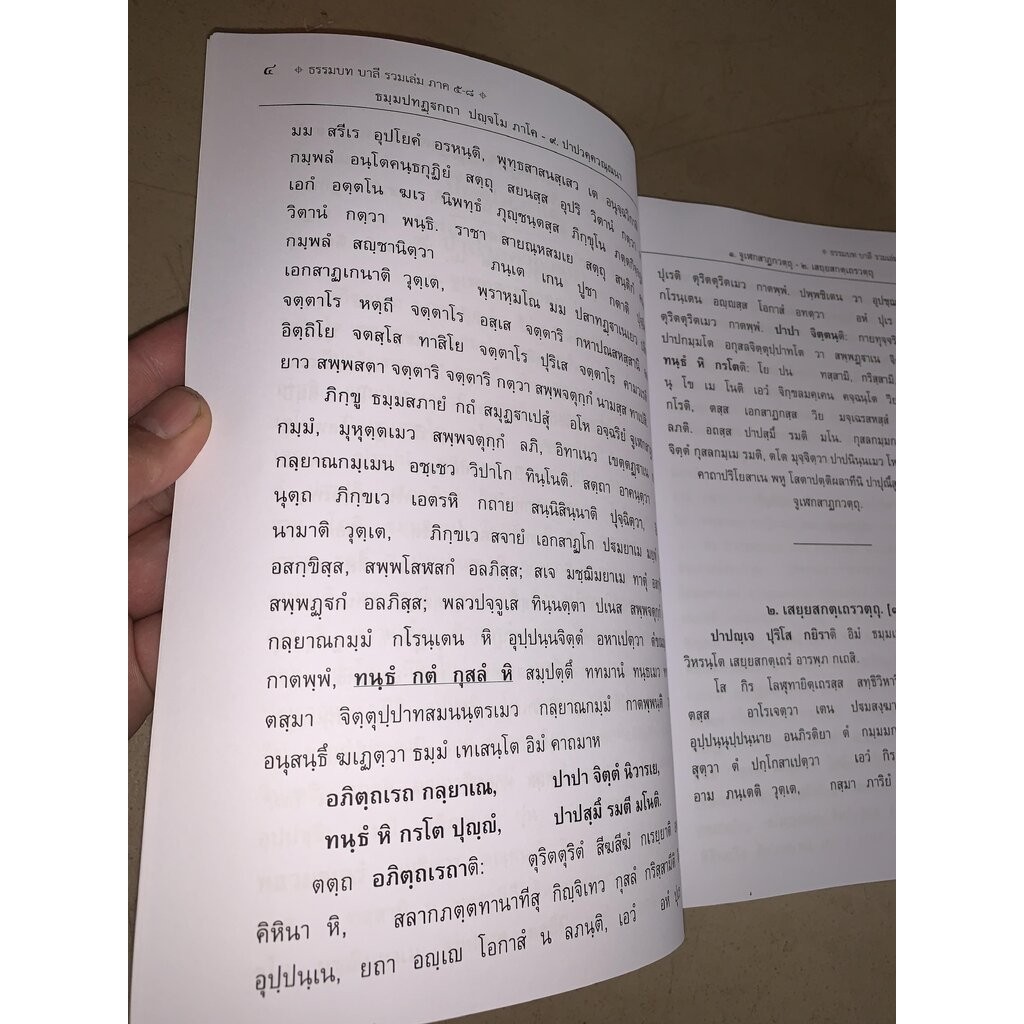 ๔ ❖ ธรรมบท บาลี รวมเล่ม ภาค ๕-๘ ❖
ธมฺมปทฏฺฐกถา ปญฺจโม ภาโค - ๙. ปาปวคฺควณฺณนา
มม สรีเร อุปโยคํ อรหนฺติ, พุทฺธสาสนสฺเสว เต
กมฺพลํ อนฺโตคนฺธกุฏิยํ สตฺถุ สยนสฺส อุปริ วิตานํ กตฺวา
เอกํ อตฺตโน ฆเร นิพทฺธํ ภุญฺชนฺตสฺส ภิกฺขุโน
วิตานํ กตฺวา พนฺธิ. ราชา สายณฺหสมเย สตฺถุ สนฺติกํ
กมฺพลํ สญฺชานิตฺวา ภนฺเต เกน ปูชา กตาติ
เอกสาฏเกนาติ วุตฺเต, พฺราหฺมโณ มม ปสาทฏฺฐาเนเยว
จตฺตาโร หตฺถี จตฺตาโร อสฺเส จตฺตาริ กหาปณสหสฺสานิ
อิตฺถิโย จตสฺโส ทาสิโย จตฺตาโร ปุริเส จตฺตาโร
ยาว สพฺพสตา จตฺตาริ จตฺตาริ กตฺวา สพฺพจตุกฺกํ นามสฺส
ภิกฺขู ธมฺมสภายํ กถํ สมุฏฺฐาเปสุํ อโห อจฺฉริยํ
กมฺมํ, มุหุตฺตเมว สพฺพจตุกฺกํ ลภิ, อิทาเนว
กลฺยาณกมฺเมน อชฺเชว วิปาโก ทินฺโนติ. สตฺถา อาคนฺตฺวา
นุตฺถ ภิกฺขเว เอตรหิ กถาย สนฺนิสินฺนาติ ปุจฺฉิตฺวา,
นามาติ วุตฺเต, ภิกฺขเว สจายํ เอกสาฏโก ปฐมยาเม
อสกฺขิสฺส, สพฺพโสฬสกํ อลภิสฺส; สเจ มชฺฌิมยาเม ทาตุํ
สพฺพฏฺฐกํ อลภิสฺส; พลวปจฺจูเส ทินฺนตฺตา ปเนส สพฺพจตุกฺกํ
กลฺยาณกมฺมํ กโรนฺเตน หิ อุปฺปนฺนจิตฺตํ อหาเปตฺวา
กาตพฺพํ, ทนฺธํ กตํ กุสลํ หิ สมฺปตฺตึ ททมานํ ทนฺธเมว
ตสฺมา จิตฺตุปฺปาทสมนนฺตรเมว กลฺยาณกมฺมํ กาตพฺพนฺติ
อนุสนฺธึ ฆเฏตฺวา ธมฺมํ เทเสนฺโต อิมํ คาถมาห
อภิตฺถเรถ กลฺยาเณ, ปาปา จิตฺตํ นิวารเย,
ทนฺธํ หิ กรโต ปุญฺญํ, ปาปสฺมึ รมตี มโนติ.
ตตฺถ อภิตฺถเรถาติ: ตุริตตุริตํ สีฆสีฆํ กเรยฺยาติ
คิหินา หิ, สลากภตฺตทานาทีสุ กิญฺจิเทว กุสลํ กริสฺสามีติ
อุปฺปนฺเน, ยถา อญฺเญ โอกาสํ น ลภนฺติ, เอวํ อหํ
❖ ธรรมบท บาลี รวมเล่ม
๑. จูเฬกสาฏกวตฺถุ - ๒. เสยฺยสกตฺเถรวตฺถุ
ปุเรติ ตุริตตุริตเมว กาตพฺพํ. ปพฺพชิเตน วา
กโรนฺเตน อญฺญสฺส โอกาสํ อทตฺวา อหํ ปุเร
ตุริตตุริตเมว กาตพฺพํ. ปาปา จิตฺตนฺติ:
ปาปกมฺมโต อกุสลจิตฺตุปฺปาทโต วา สพฺพฏฺฐาเน
ทนฺธํ หิ กรโตติ: โย ปน ทสฺสามิ, กริสฺสามิ
นุ โข เม โนติ เอวํ จิกฺขลมคฺเคน คจฺฉนฺโต วิย
กโรติ, ตสฺส เอกสาฏกสฺส วิย มจฺเฉรสหสฺสํ
ลภติ. อถสฺส ปาปสฺมึ รมติ มโน.
จิตฺตํ กุสลกมฺเม รมติ, ตโต มุจฺจิตฺวา ปาปนินฺนเมว
คาถาปริโยสาเน พหู โสตาปตฺติผลาทีนิ ปาปุณึสูติ
จูเฬกสาฏกวตฺถุ.
๒. เสยฺยสกตฺเถรวตฺถุ.
ปาปญฺเจ ปุริโส กยิราติ อิมํ
วิหรนฺโต เสยฺยสกตฺเถรํ อารพฺภ กเถสิ.
โส กิร โลฬุทายิตฺเถรสฺส สทฺธิวิหาริ
ตสฺส อาโรเจตฺวา เตน
อุปฺปนฺนุปฺปนฺนาย อนภิรติยา ตํ
สุตฺวา ตํ ปกฺโกสาเปตฺวา เอวํ กิร
อาม ภนฺเตติ วุตฺเต, กสฺมา ภาริยํ